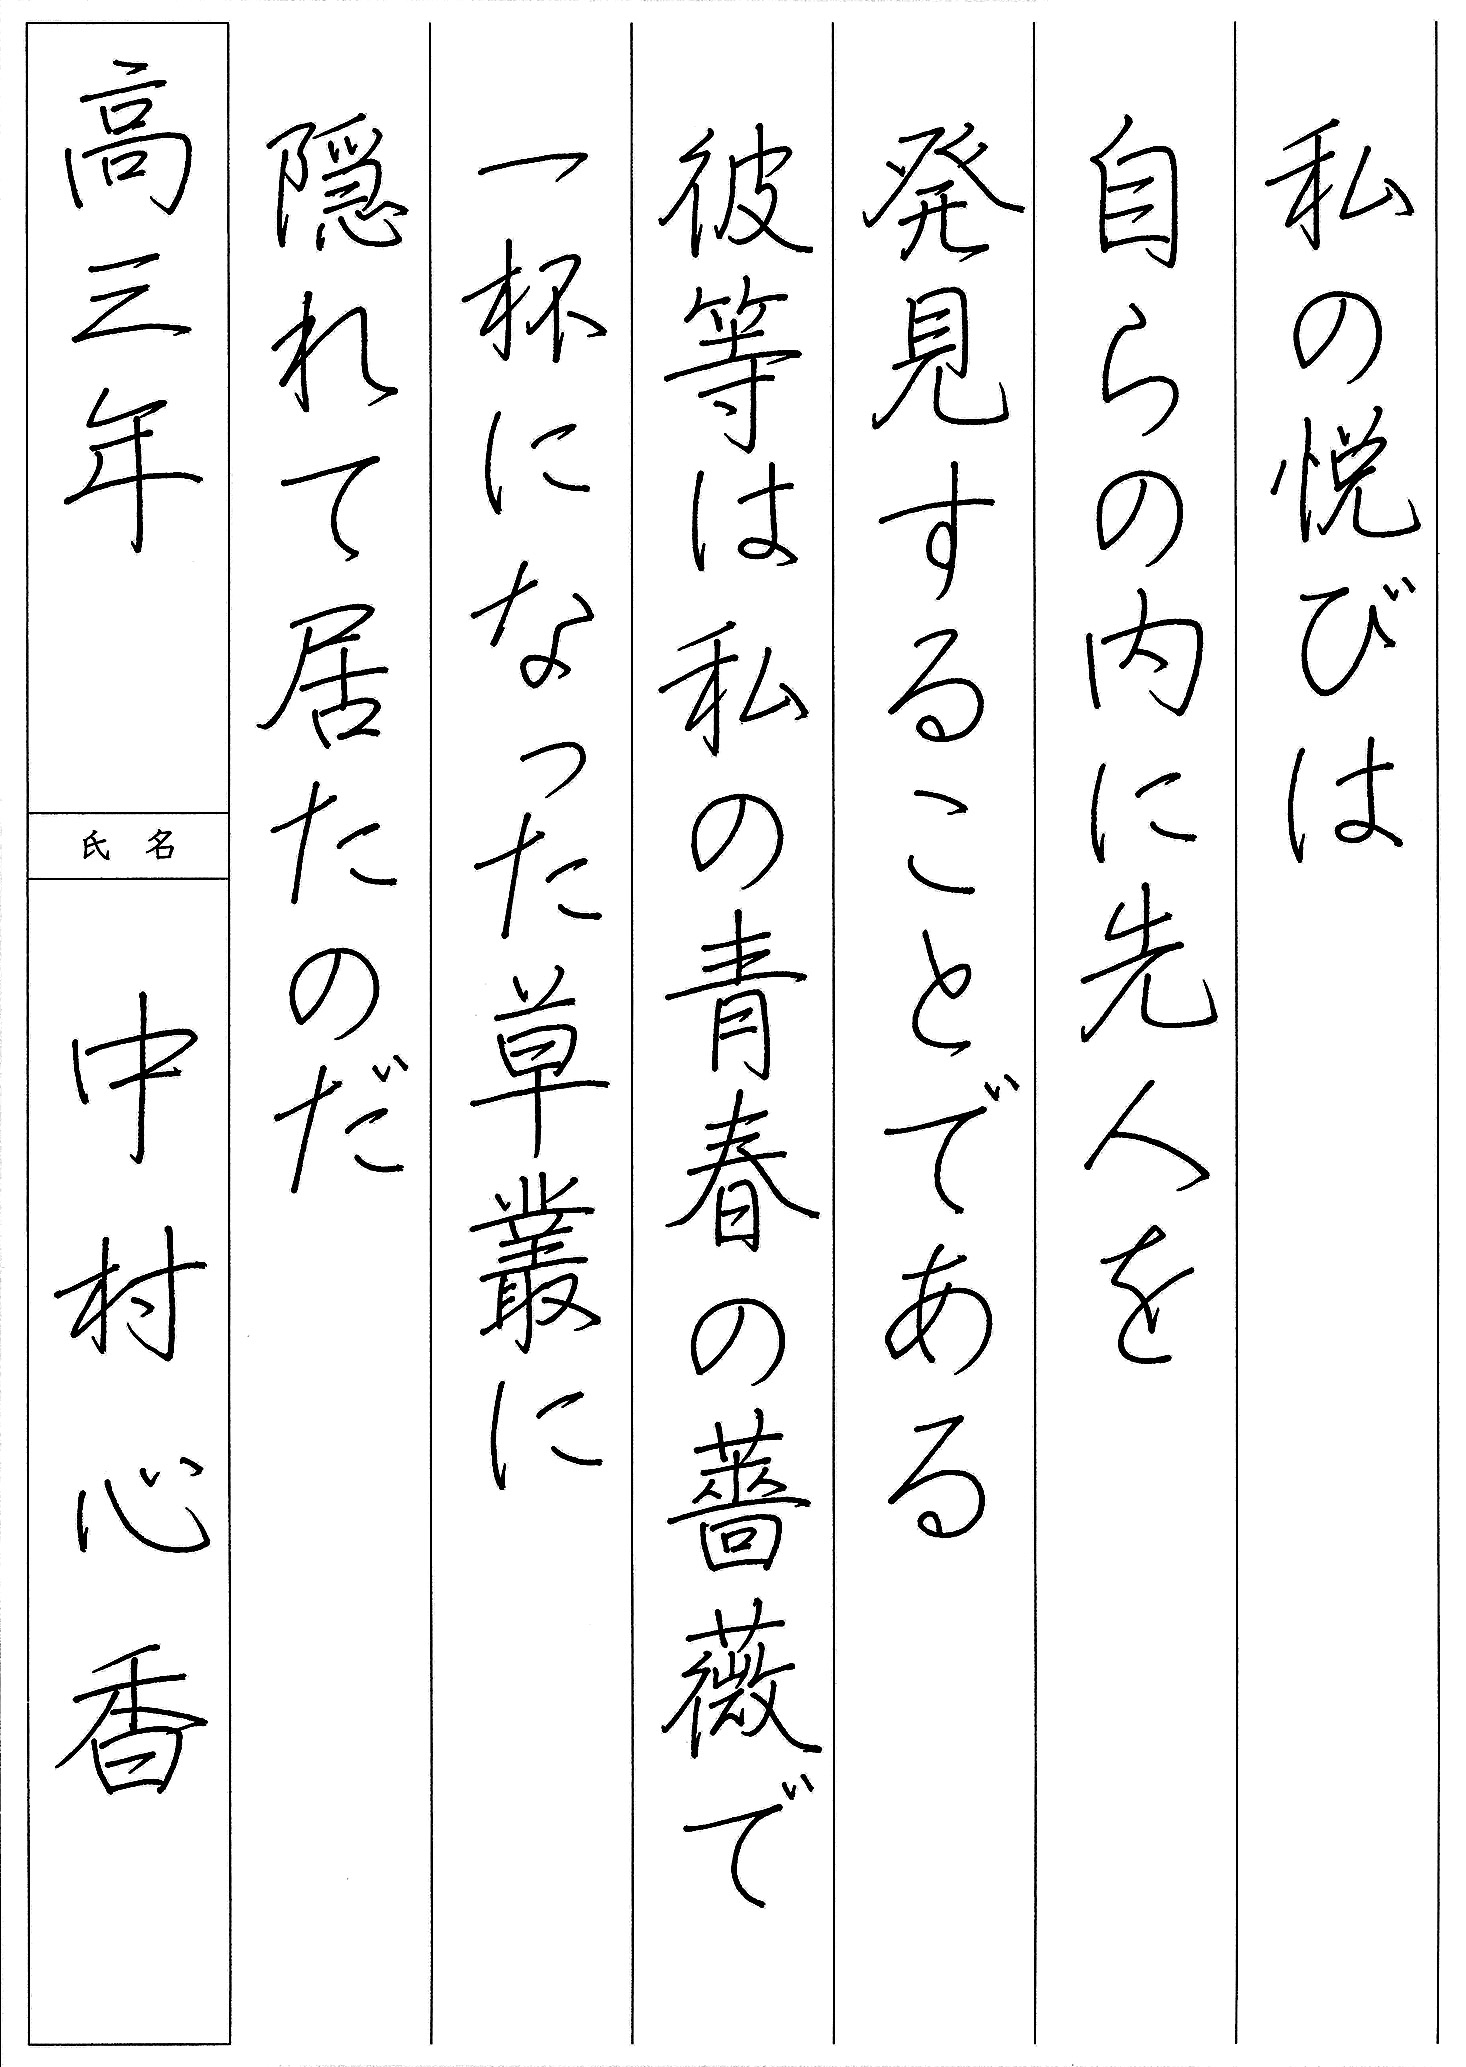 私の悦びは
自らの内に先人を
発見することである
彼等は私の青春の薔薇で
一杯になった草叢に
隠れて居たのだ
高三年
氏名
中村心香